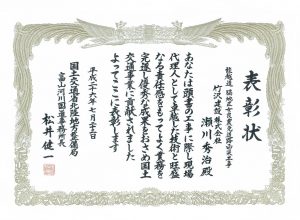 表彰状
竹沢建設株式会社
瀬川秀治殿
あなたは頭書の工事に際し現場
代理人として卓越した技術と旺盛
なる責任感をもってよく業務を
完遂し優秀な成果をおさめ国土
交通事業に貢献されました
よってここに表彰します
平成二十六年七月二十三日
国土交通省北陸地方整備局
富山河川国道事務所長
松井健一